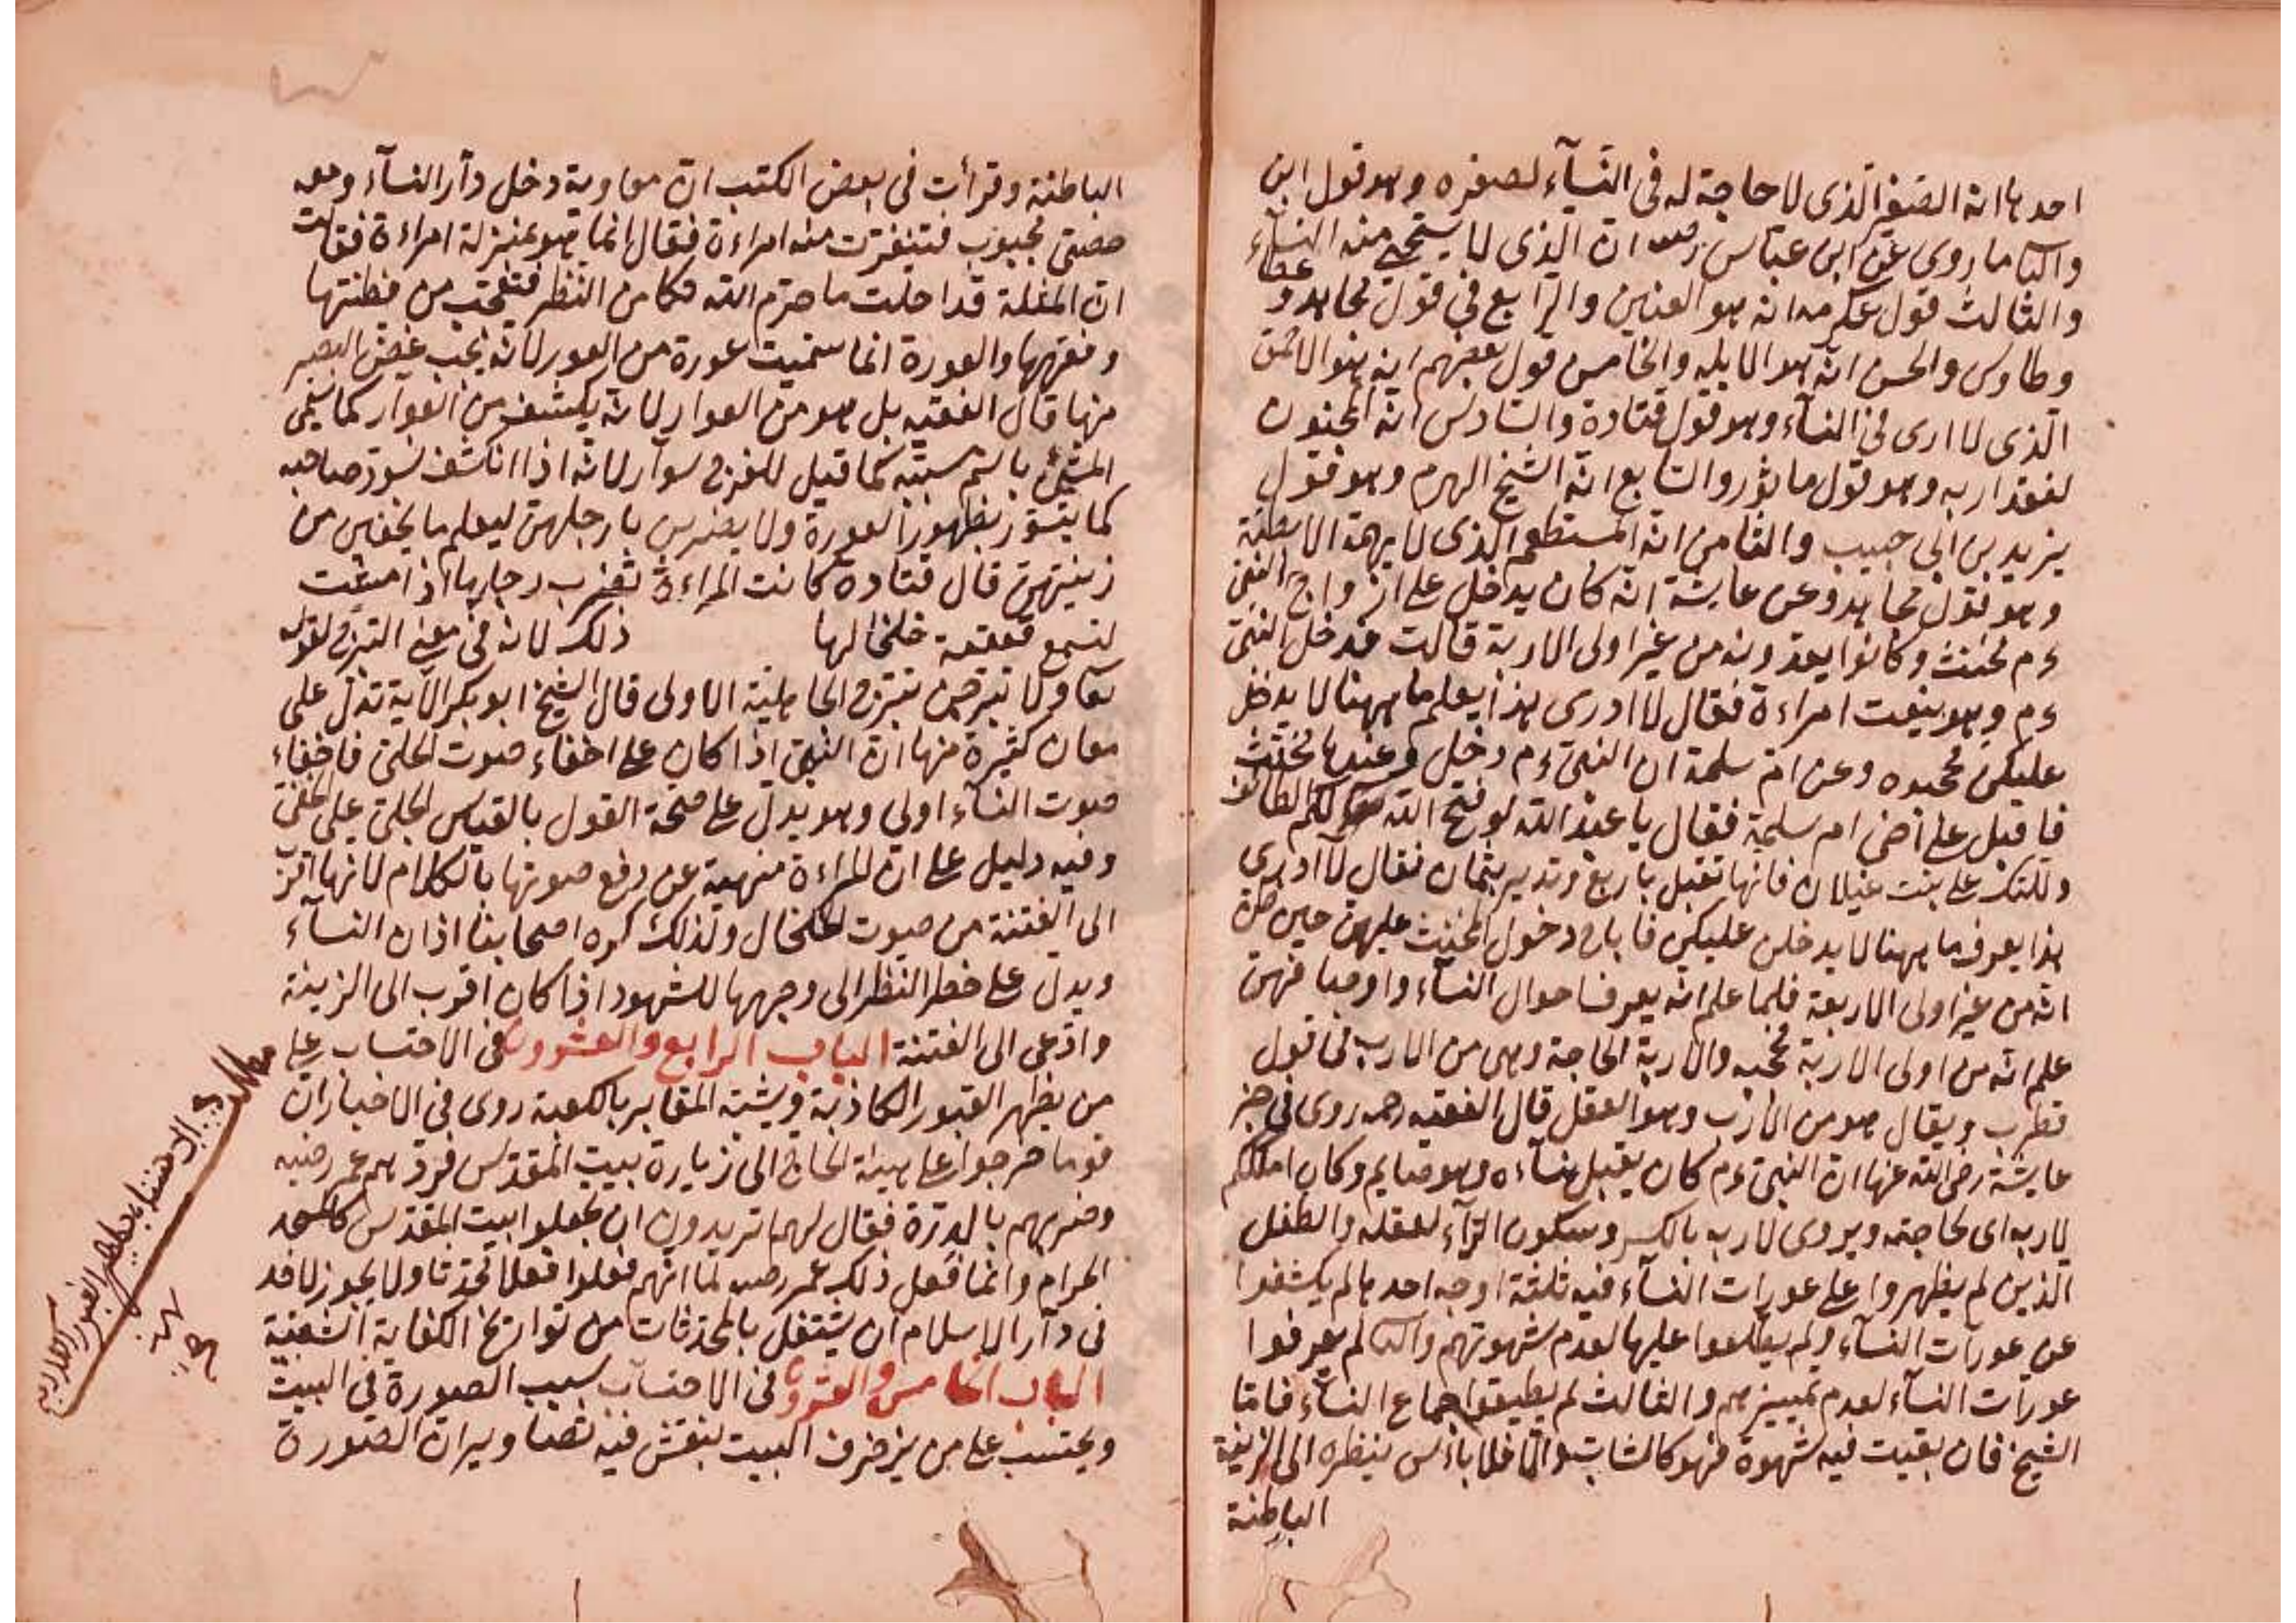 احدها انه الصغير الذى لا حاجة له فى النسآء لصغره وهو قول ابن
والثا ما روى عن ابن عباس رضه ان الذى لا يستحيى منه النسآء
والثالث قول عكرمه انه هو العنين والرابع فى قول مجاهد و عطاء
وطاوس والحسن انه هو الابله والخامس قول بعضهم انه هو الاحمق
الذى لا ارى فى النسآء وهو قول قتادة والسادس انه المجنون
لفقد اربه وهو قول ماثور والسابع انه الشيخ الهرم وهو قول
يزيد بن ابى حبيب والثامن انه المستطعم الذى لا يهمه الا بطنه
وهو قول مجاهد وعن عايشة انه كان يدخل على ازواج النبى
ءم مخنث وكانوا يعدونه من غير اولى الاربة قالت فدخل النبى
ءم وهو ينعت امراءة فقال لا ادرى هذا يعلم ما ههنا لا يدخل
عليكن فحجبوه وعن ام سلمة ان النبى ءم دخل وعندها مخنث
فاقبل على اخى ام سلمة فقال يا عبد الله لو فتح الله لكم الطائف
دللتك على بنت غيلان فانها تقبل باربع وتدبر بثمان فقال لا ادرى
هذا يعرف ما ههنا لا يدخلن عليكن فاباح دخول المخنث عليهن حين ظن
انه من غير اولى الاربة فلما علم انه يعرف احوال النسآء واوصافهن
علم انه من اولى الاربة فحجبه والاربة الحاجة وهى من الارب فى قول
قطرب ويقال هو من الارب وهو العقل قال الفقيه رحمه روى فى خبر
عايشة رضى الله عنها ان النبى ءم كان يقبل نسآءه وهو صايم وكان املككم
لاربه اى لحاجته ويروى لاربه بالكسر وسكون الرآء لعقله والطفل
الذين لم يظهروا على عورات النسآء فيه ثلثة اوجه احدها لم يكشفوا
عن عورات النسآء ولم يطلعوا عليها لعدم شهوتهم والثا لم يعرفوا
عورات النسآء لعدم تمييزهم والثالث لم يطيقوا جماع النسآء فاما
الشيخ فان بقيت فيه شهوة فهو كالشاب والا فلا باءس بنظره الى الزينة
الباطنة
الباطنة وقرأت فى بعض الكتب ان معاوية دخل دآر النسآء ومعه
خصى مجبوب فتنفرت منه امراءة فقال انما هو بمنزلة امراءة فقالت
ان المثلة قد احلت ما حرم الله مكا من النظر فتعجب من فطنتها
وفقهها والعورة انما سميت عورة من العور لانه يجب غض البصر
منها قال الفقيه بل هو من العوار لانه يكشف من العوار كما سمى
الشئ باسم سببه كما قيل للفرج سوآر لانه اذا انكشف تسور صاحبه
كما يتسور بظهور العورة ولا يضربن بارجلهن ليعلم ما يخفين من
زينتهن قال قتادة كانت المراءة تضرب رجليها اذا مشت
لتسمع قعقعة خلخالها ذلك لانه فى معنى التبرج لقوله
تعا ولا تبرجن تبرج الجاهلية الاولى قال الشيخ ابو بكر الاية تدل على
معان كثيرة منها ان النهى اذا كان على اخفاء صوت الحلى فاخفاء
صوت النسآء اولى وهو يدل على صحة القول بالقياس الجلى على الخفى
وفيه دليل على ان المراءة منهية عن رفع صوتها بالكلام لانها اقرب
الى الفتنة من صوت الخلخال ولذلك كره اصحابنا اذان النسآء
ويدل على خطر النظر الى وجهها للشهود اذا كان اقرب الى الزينة
وادعى الى الفتنة الباب الرابع والعشرون فى الاحتساب على
من يظهر القبور الكاذبة ويشبه المقابر بالكعبة روى فى الاخبار ان
قوما خرجوا على هيئة الحاج الى زيارة بيت المقدس فردهم عمر رضيه
وضربهم بالدرة فقال لهم تريدون ان تجعلوا بيت المقدس كالمسجد
الحرام وانما فعل ذلك عمر رضه لما انهم فعلوا فعلا محدثا ولا يجوز لاحد
فى دآر الاسلام ان يشتغل بالمحدثات من تواريخ الكفاية الشعبية
الباب الخامس والعشرون فى الاحتساب بسبب الصورة فى البيت
ويحتسب على من يزخرف البيت بنقش فيه تصاوير ان الصورة
مطلب فى الاحتساب يظهر القبور الكاذبة